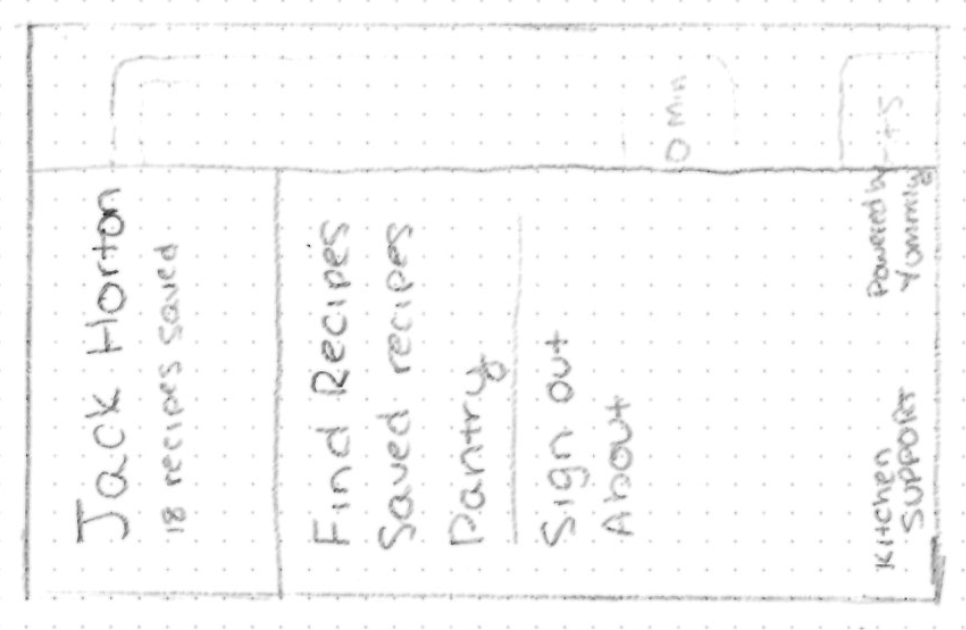 Jack Horton
18 recipes saved
Find Recipes
Saved recipes
Pantry
Sign out
About
Kitchen
SUPPORT
Powered by
Yummly
0 Min